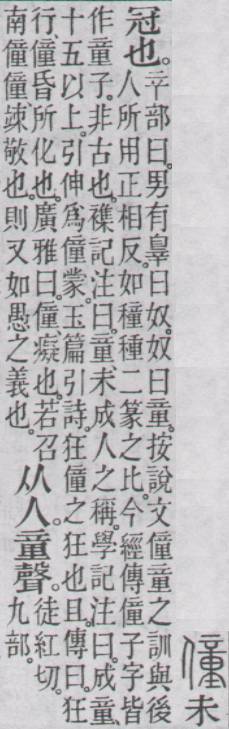 僮未
冠也。
䇂部曰。男有辠曰奴。奴曰童。按說文僮童之訓與後
人所用正相反。如穜種二篆之比。今經傳僮子字皆
作童子。非古也。襍記注曰。童、未成人之稱。學記注曰。成童、
十五以上。引伸爲僮蒙。玉篇引詩。狂僮之狂也且。傳曰。狂
行、僮昏所化也。廣雅曰。僮、癡也。若召
南僮僮、竦敬也。則又如愚之義也。
从人童聲。
徒紅切。
九部。